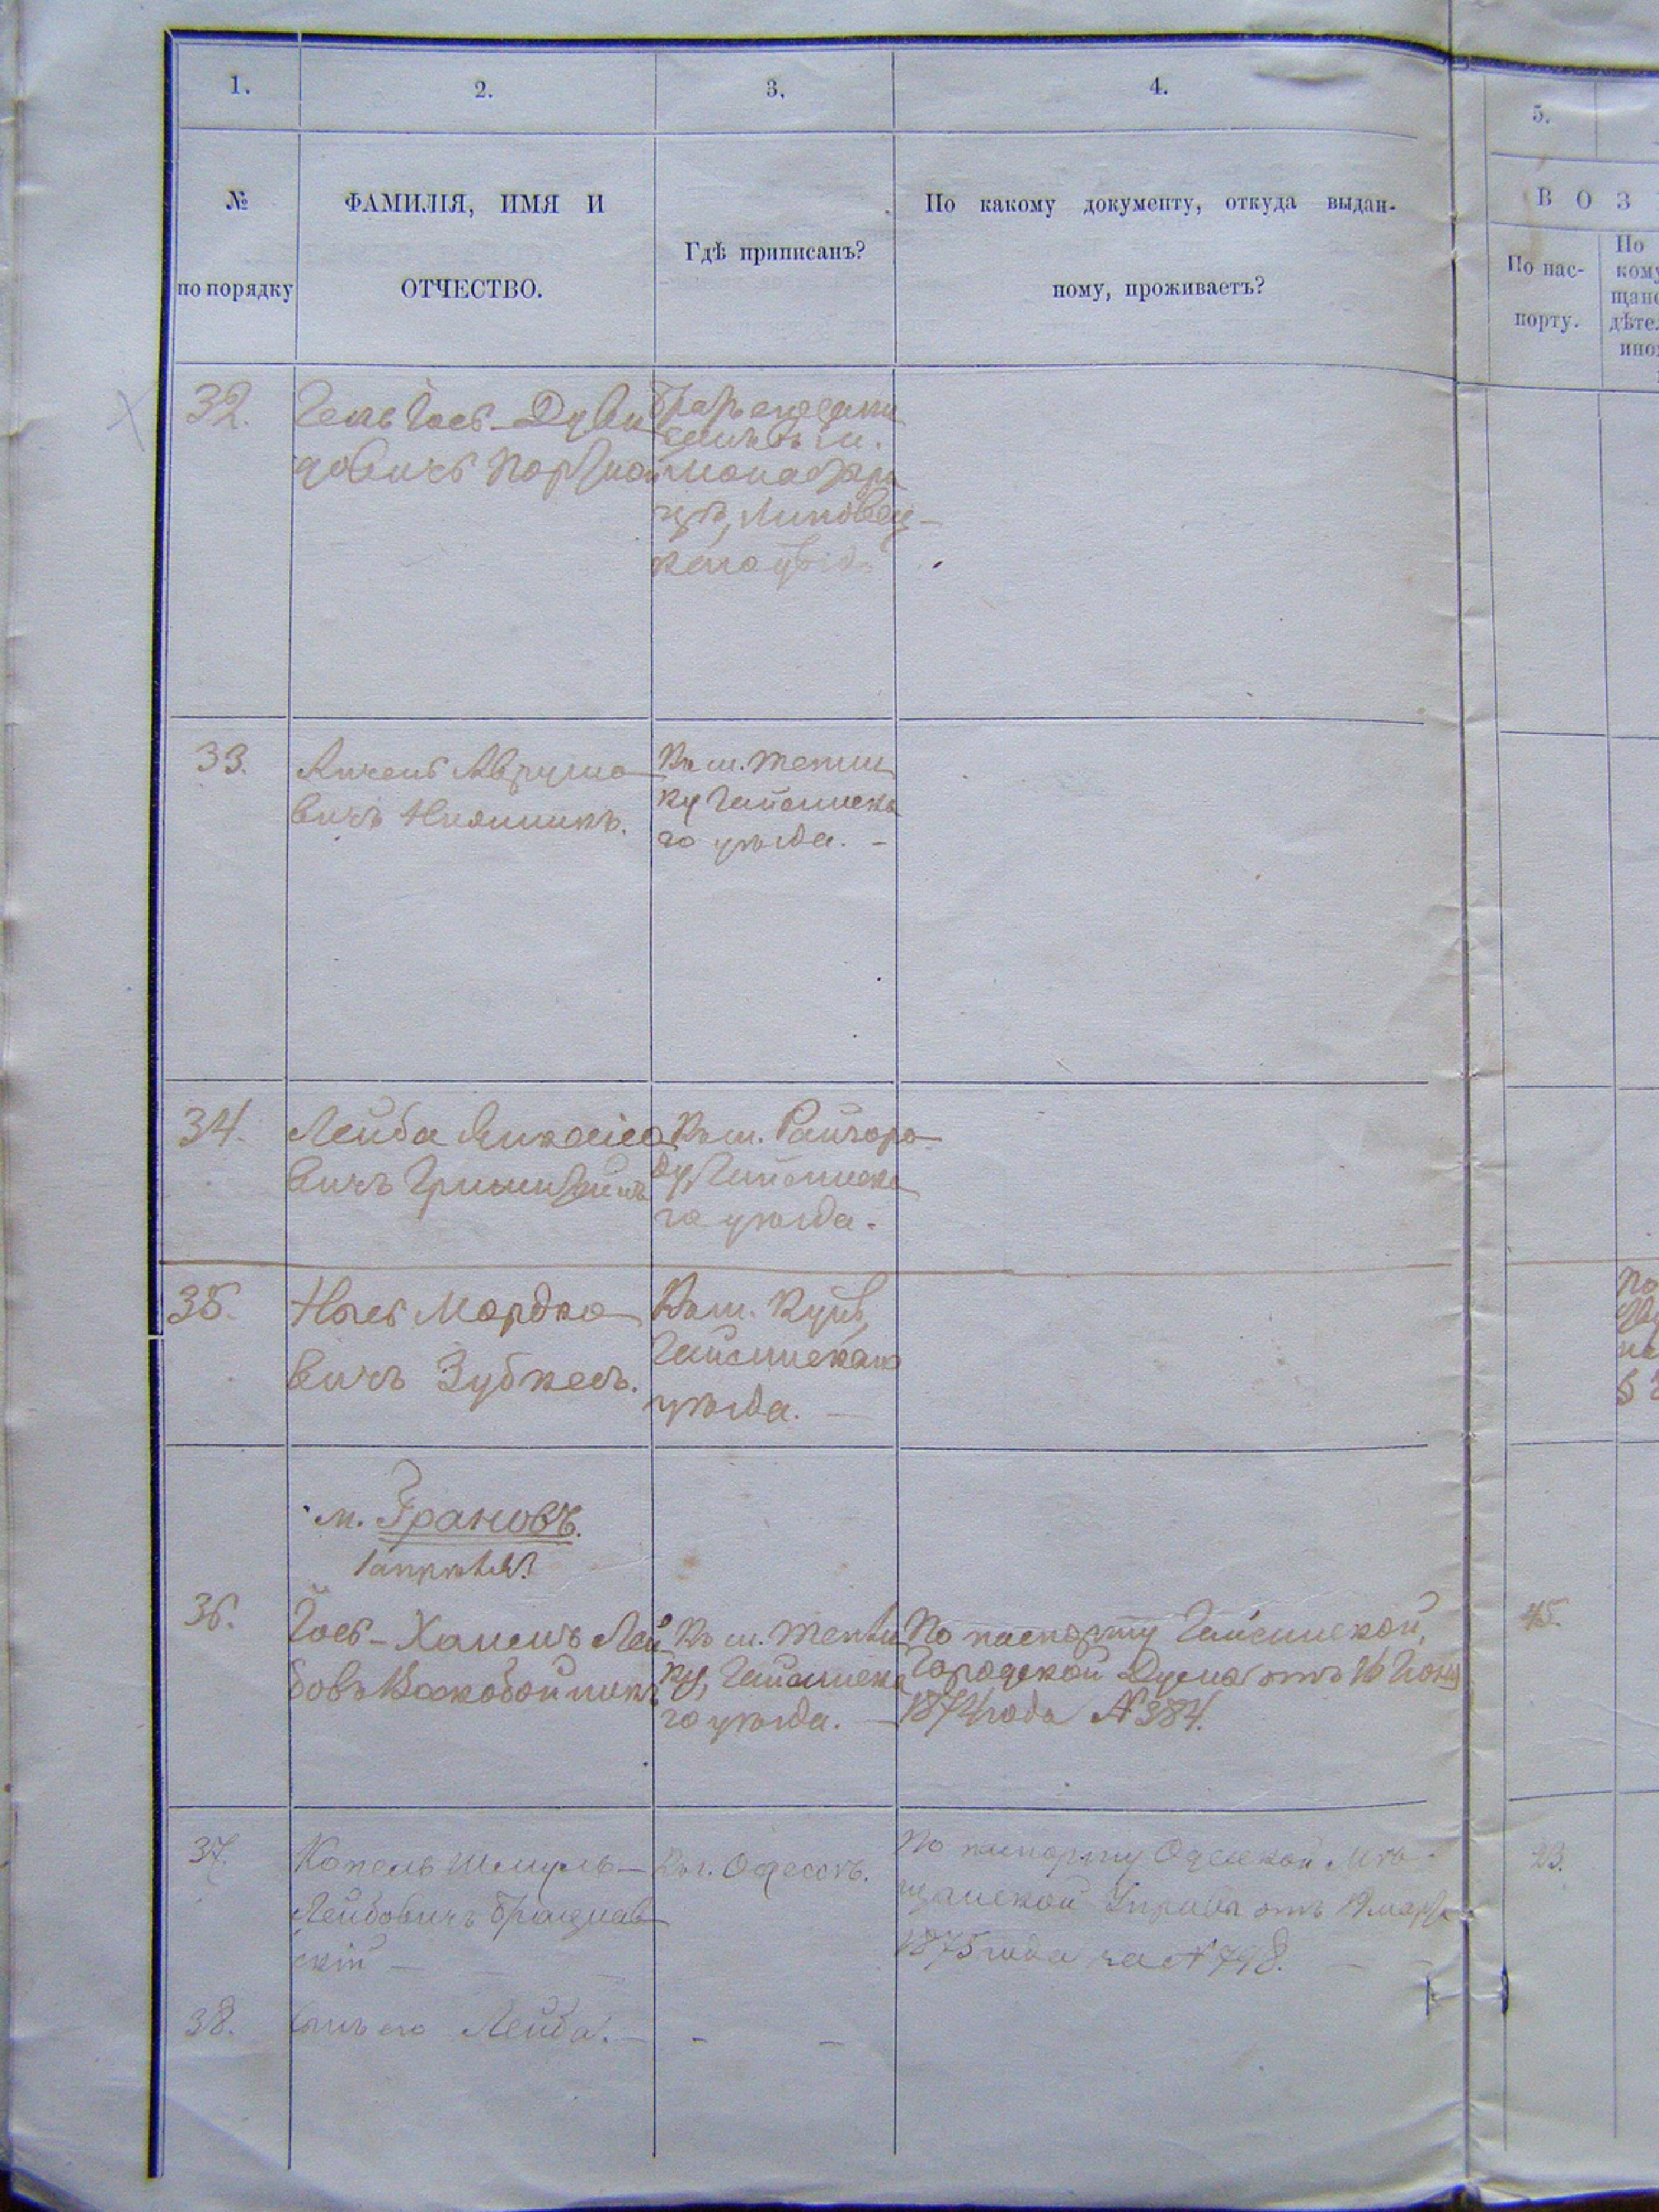 1.
2.
3.
4.
5.
№
по порядку
ФАМИЛІЯ, ИМЯ И
ОТЧЕСТВО.
Гдѣ приписанъ?
По какому документу, откуда выдан-
ному, проживаетъ?
В О З
По пас-
порту.
По
кому
щанс
дѣте
ино
32.
Дуви
довичъ Портной
Монастыри
щѣ, Липовец-
каго уѣзда
33.
Авруμο
вичъ
Къ м. Тепли
ку Гайсинска
го уѣзда. -
34.
Лейба
вичъ Гринштейнъ
Къ м. Райгоро
ду, Гайсинска
го уѣзда.
35.
Мордко
вичъ Зубкесъ.
Къ м. Кунѣ,
Гайсинскаго
уѣзда. -
м. Грановъ.
1 апрѣля
36.
Іось-Хаимъ Лей
бовъ Воскобойникъ
Къ м. Тепли
ку, Гайсинска
го уѣзда. -
По паспорту Гайсинской
Городской Думы отъ 16 Іюня
1874 года № 384.
45.
37.
Копель Шмуль-
Лейбовичъ Брацлав
скій -
Къ г. Одессѣ.
По паспорту Одесской Мѣ-
щанской Управы отъ 19 марта
1875 года за № 798.
23.
38.
Сынъ его Лейба. -